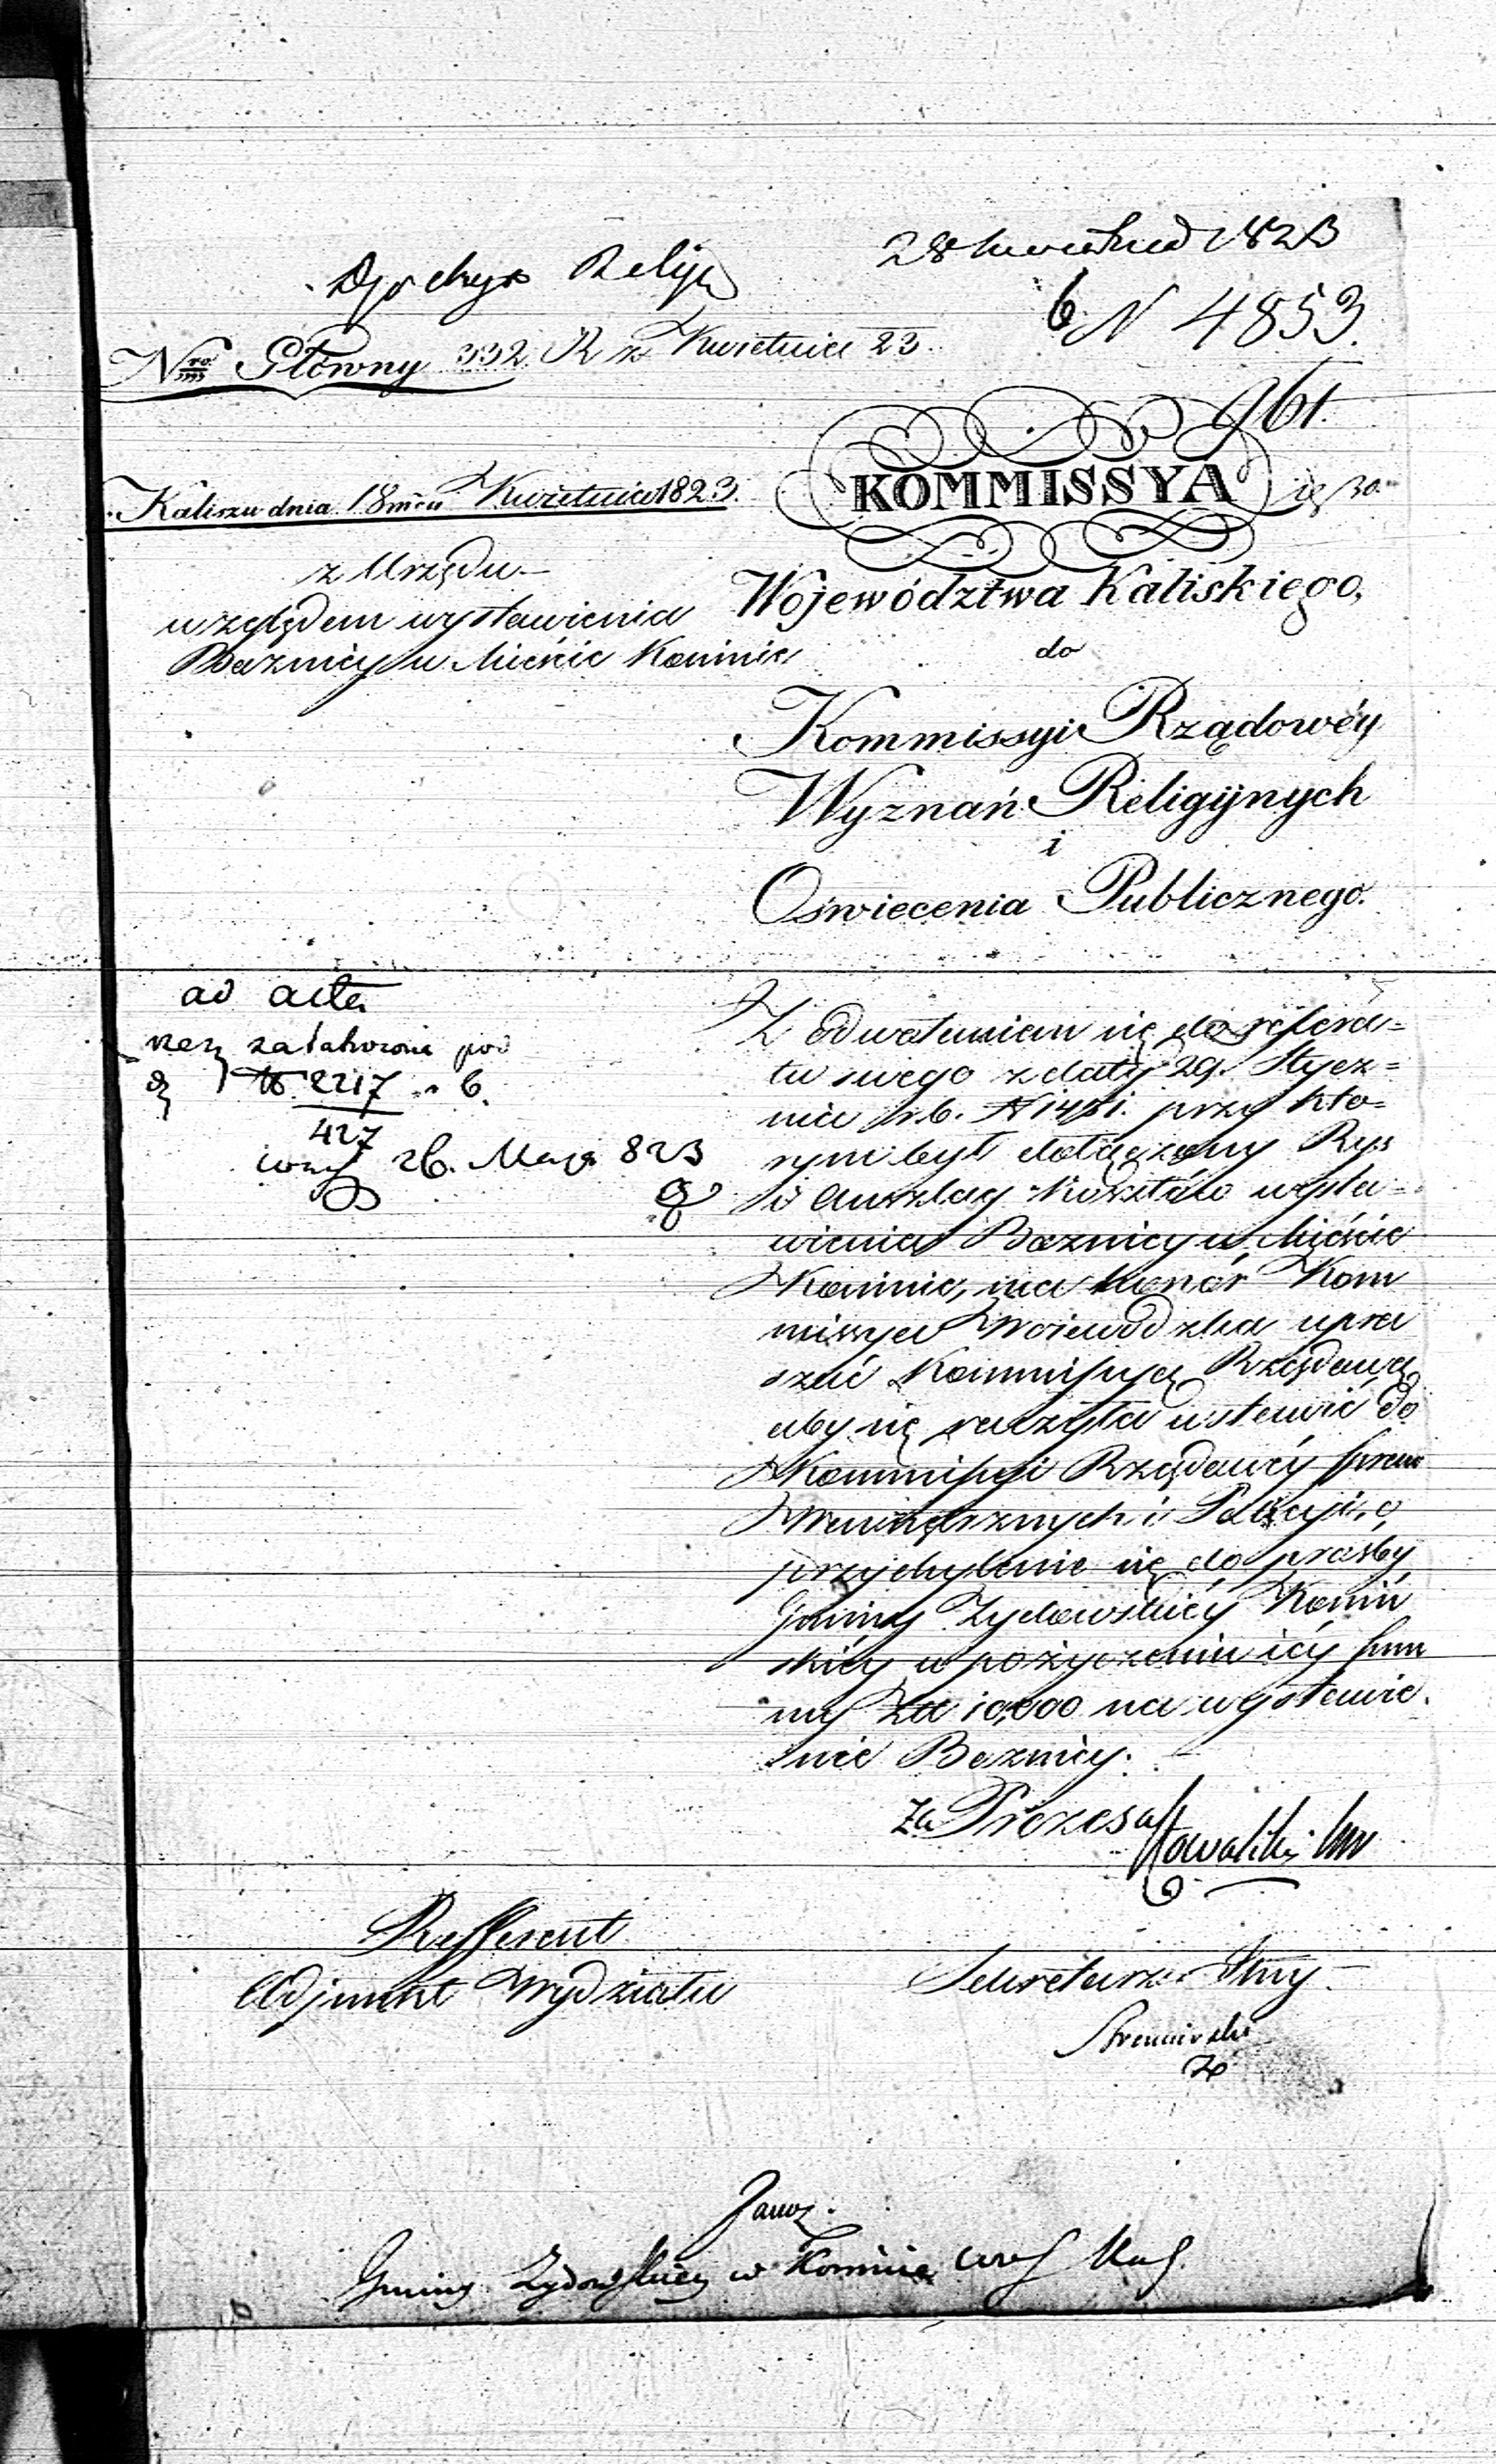 28 kwietnia 1823
Relig
6 N 4853.
Nro Główny 332. R z Kwietnia 23.
961.
Kalisz dnia 18 mca Kwietnia 1823.
KOMMISSYA
z Urzędu
względem wystawienia
Bożnicy w Mieście Koninie
Województwa Kaliskiego,
do
Kommissyi Rządowéy
Wyznań Religiynych
i
Oświecenia Publicznego.
ad acta
rzecz załatwiona pod
N 2217 6.
427
26. Maja 823
Z odwołaniem się do refera=
tu swego z daty 29. Stycz=
nia r. b. N 1451. przy któ=
rym był dołączony Rys
i Anszlag kosztów wysta=
wienia Bożnicy w Mieście
Koninie, ma honór Kom
missya Woiewódzka upra
szać Kommissyą Rządową
aby się raczyła wstawić do
Kommissyi Rządowéy spraw
Wewnętrznych i Policyi, o
przychylenie się do prośby
Gminy Żydowskiéy Koniń
skiéy w pożyczeniu iéy sum
my Złł 10,000 na wystawie
nie Bożnicy.
Za Prezesa
Kowalski
Refferent
Adjunkt Wydziału
Sekretarz Jlny
Gminy Żydowskiey w Koninie